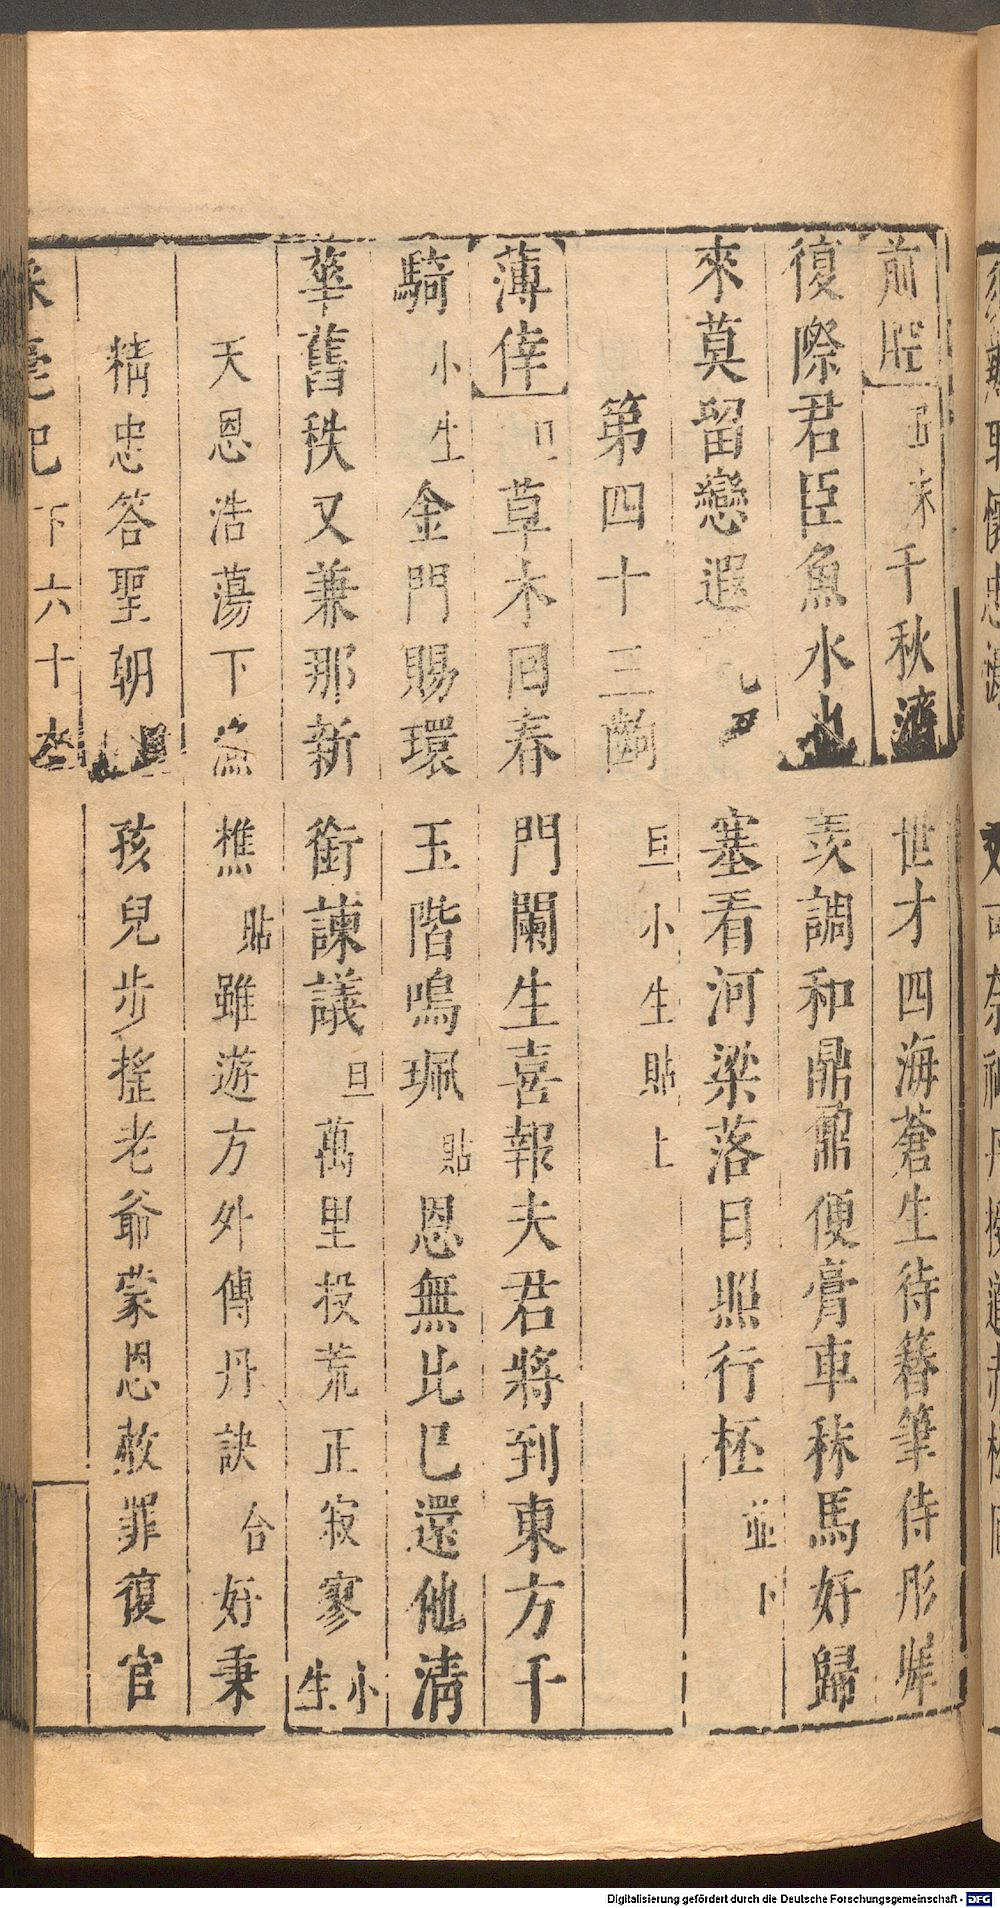 前腔 丑末千秋濟世才四海蒼生待簪筆侍彤墀
復際君臣魚水羨調和鼎鼐便膏車秣馬好歸
來莫留戀遐塞看河梁落日照行杯 並下
第四十三齣 旦小生貼上
薄倖 旦 草木回春門闌生喜報夫君將到東方千
騎 小生 金門賜環玉階鳴珮 貼 恩無比已還他清
華舊秩又兼那新銜諫議 旦 萬里投荒正寂寥 小生
天恩浩蕩下漁樵 貼 雖遊方外傳丹訣 合 好秉
精忠答聖朝 孩兒步搖老爺蒙恩赦罪復官
毫記 下 六十
Digitalisierung gefördert durch die Deutsche Forschungsgemeinschaft - DFG